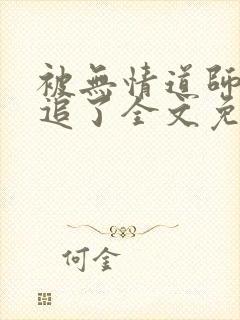 被無情道師
追了全文免
何金